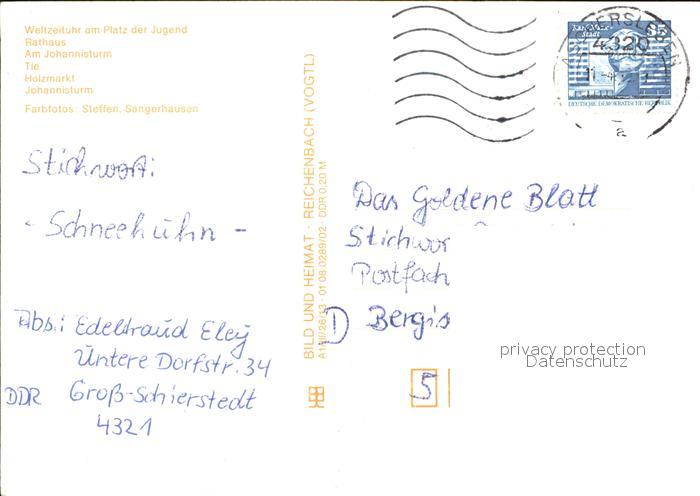 Weltzeituhr am Platz der Jugend
Rathaus
Am Johannisturm
Tie
Holzmarkt
Johannisturm
Farbfotos: Steffen, Sangerhausen
Stichwort:
- Schneehuhn -
Abs.: Edeltraud Eley
Untere Dorfstr. 34
DDR Groß-Schierstedt
4321
BILD UND HEIMAT · REICHENBACH (VOGTL)
01 08 0289/02 · DDR 0,20 M
4320
a
35
DEUTSCHE DEMOKRATISCHE REPUBLIK
Das Goldene Blatt
Stichwor
Postfach
D Bergis
5
privacy protection
Datenschutz